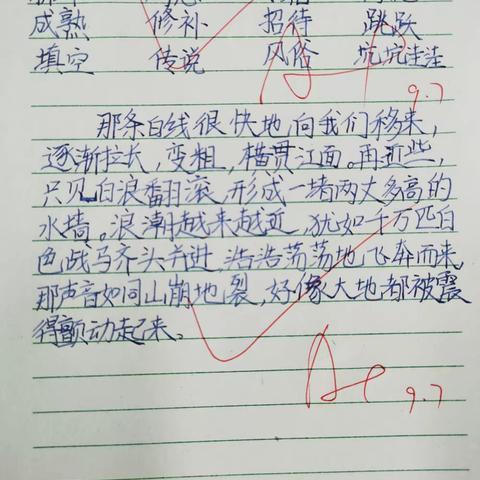 成熟 修补 招待 跳跃
填空 传说 风俗 坑坑洼洼
9.7
那条白线很快地向我们移来,
逐渐拉长,变粗,横贯江面。再近些,
只见白浪翻滚,形成一堵两丈多高的
水墙。浪潮越来越近,犹如千万匹白
色战马齐头并进,浩浩荡荡地飞奔而来,
那声音如同山崩地裂,好像大地都被震
得颤动起来。
A+
9.7